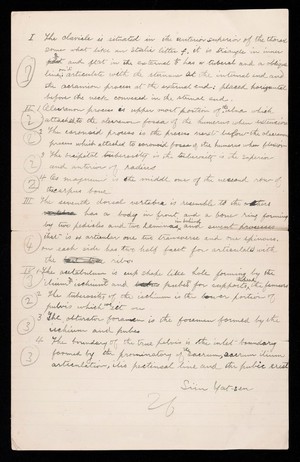 I The clavicle is situated in the anterior superior of the thorax
some what like an italic letter f. it is triangle in inner
part and flat in the external & has a tubercle and a oblique
line, articulate with the sternum at the internal end and
the acromion process at the external end; placed horizontal
before the neck convexed in the sternal end.
7
II. 1 Olecranon process is upper most portion of ulna which
attached to the olecranon fossa of the humerus when extension
2 The coronoid process is the process most below the olecranon
process which attached to coronoid fossa of the humerus when flexion
3 The bicipital tuberosity is the tuberosity in the superior
and anterior of radius
4 Os magnum is the middle one of the second row of
the carpus bone
III The seventh dorsal vertebra is resemble to the others
has a body in front and a bone ring forming
by two pedicles and two laminae, and seven processes
that is articular one two transverse and one spinous.
on each side has two half facet for articulated with
the ribs
4
IV 1 The acetabulum is cup shape like hole forming by the
ilium ischium and pubes for supports the femur
2 The tuberosity of the ischium is the lower portion of
pelvis which set on
3 The obturator foramen is the foramen formed by the
ischium and pubes
4. The boundary of the true pelvis is the inlet boundary
formed by the prominatory of sacrum, sacrum ilium
articulation, ilio pectineal line and the pubic crest
3
Sun Yat-sen
26